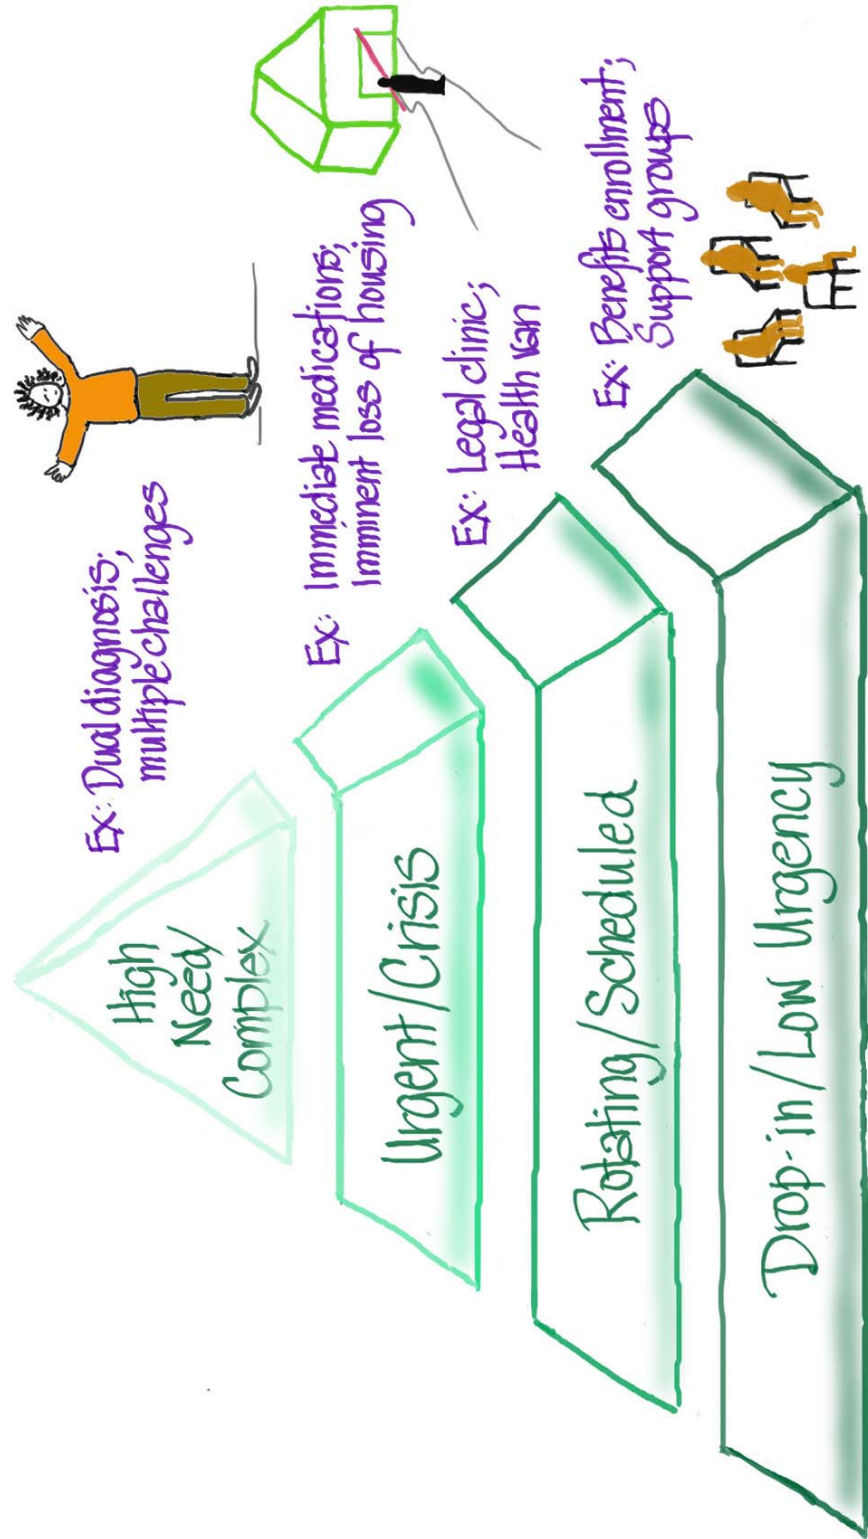 High
Need/
Complex
Ex: Dual diagnosis;
multiple challenges
Urgent/Crisis
Ex: Immediate medications;
Imminent loss of housing
Rotating/Scheduled
Ex: Legal clinic;
Health van
Drop-in/Low Urgency
Ex: Benefits enrollment;
Support groups